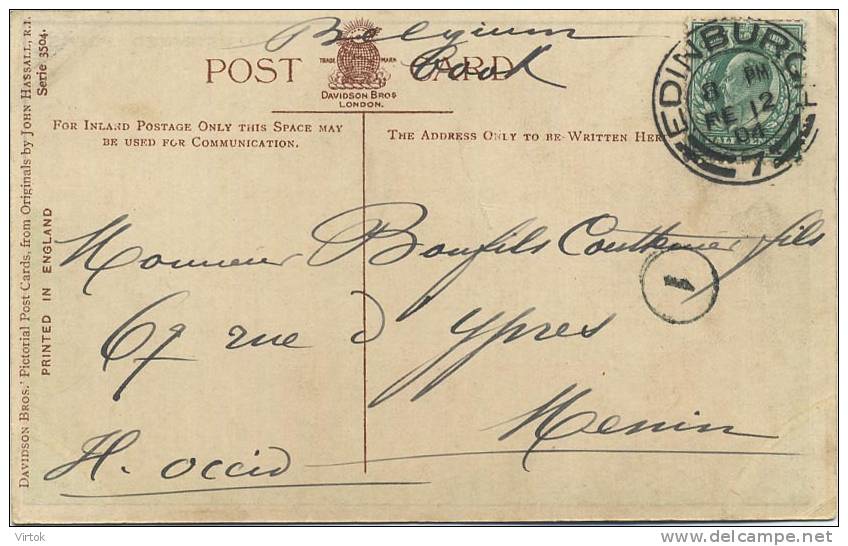 Belgium
POST CARD
TRADE MARK
DAVIDSON BROS
LONDON.
FOR INLAND POSTAGE ONLY THIS SPACE MAY
BE USED FOR COMMUNICATION.
THE ADDRESS ONLY TO BE WRITTEN HER
EDINBURGH
8 PM
FE 12
04
7
DAVIDSON BROS.' Pictorial Post Cards, from Originals by JOHN HASSALL, R.I. Serie 3504.
PRINTED IN ENGLAND
Monsieur Bonfils Couttenier fils
1
69 rue d'Ypres
Menin
Fl. Occid
Virtok
www.delcampe.net